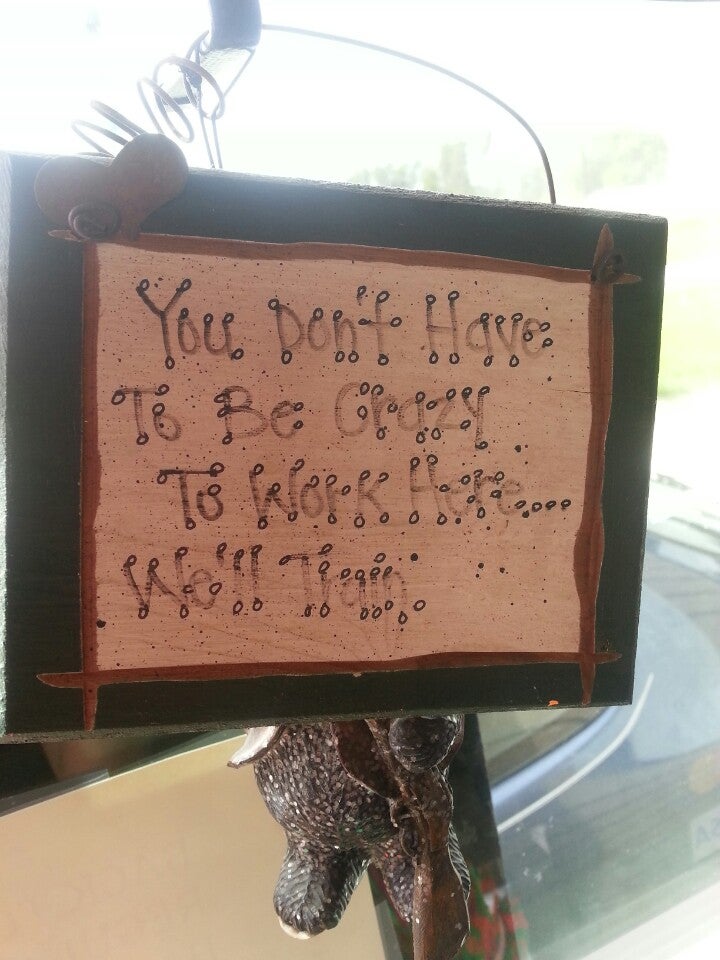 You Don't Have
To Be Crazy
To Work Here...
We'll Train.